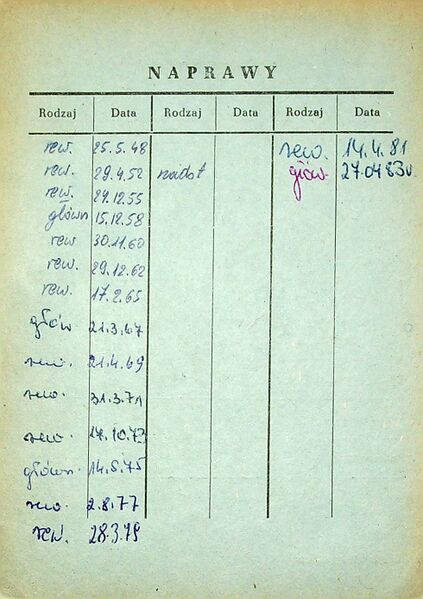 NAPRAWY
Rodzaj Data Rodzaj Data Rodzaj Data
rew. 25.5.48 rew. 14.4.81
rew. 29.4.52 nadst głów. 27.04 83
rew. 24.12.55
główn 15.12.58
rew 30.11.60
rew. 29.12.62
rew. 17.2.65
głów 21.3.67
rew. 21.4.69
rew. 31.3.71
rew. 17.10.73
główn. 14.5.75
rew. 2.8.77
rew. 28.3.79